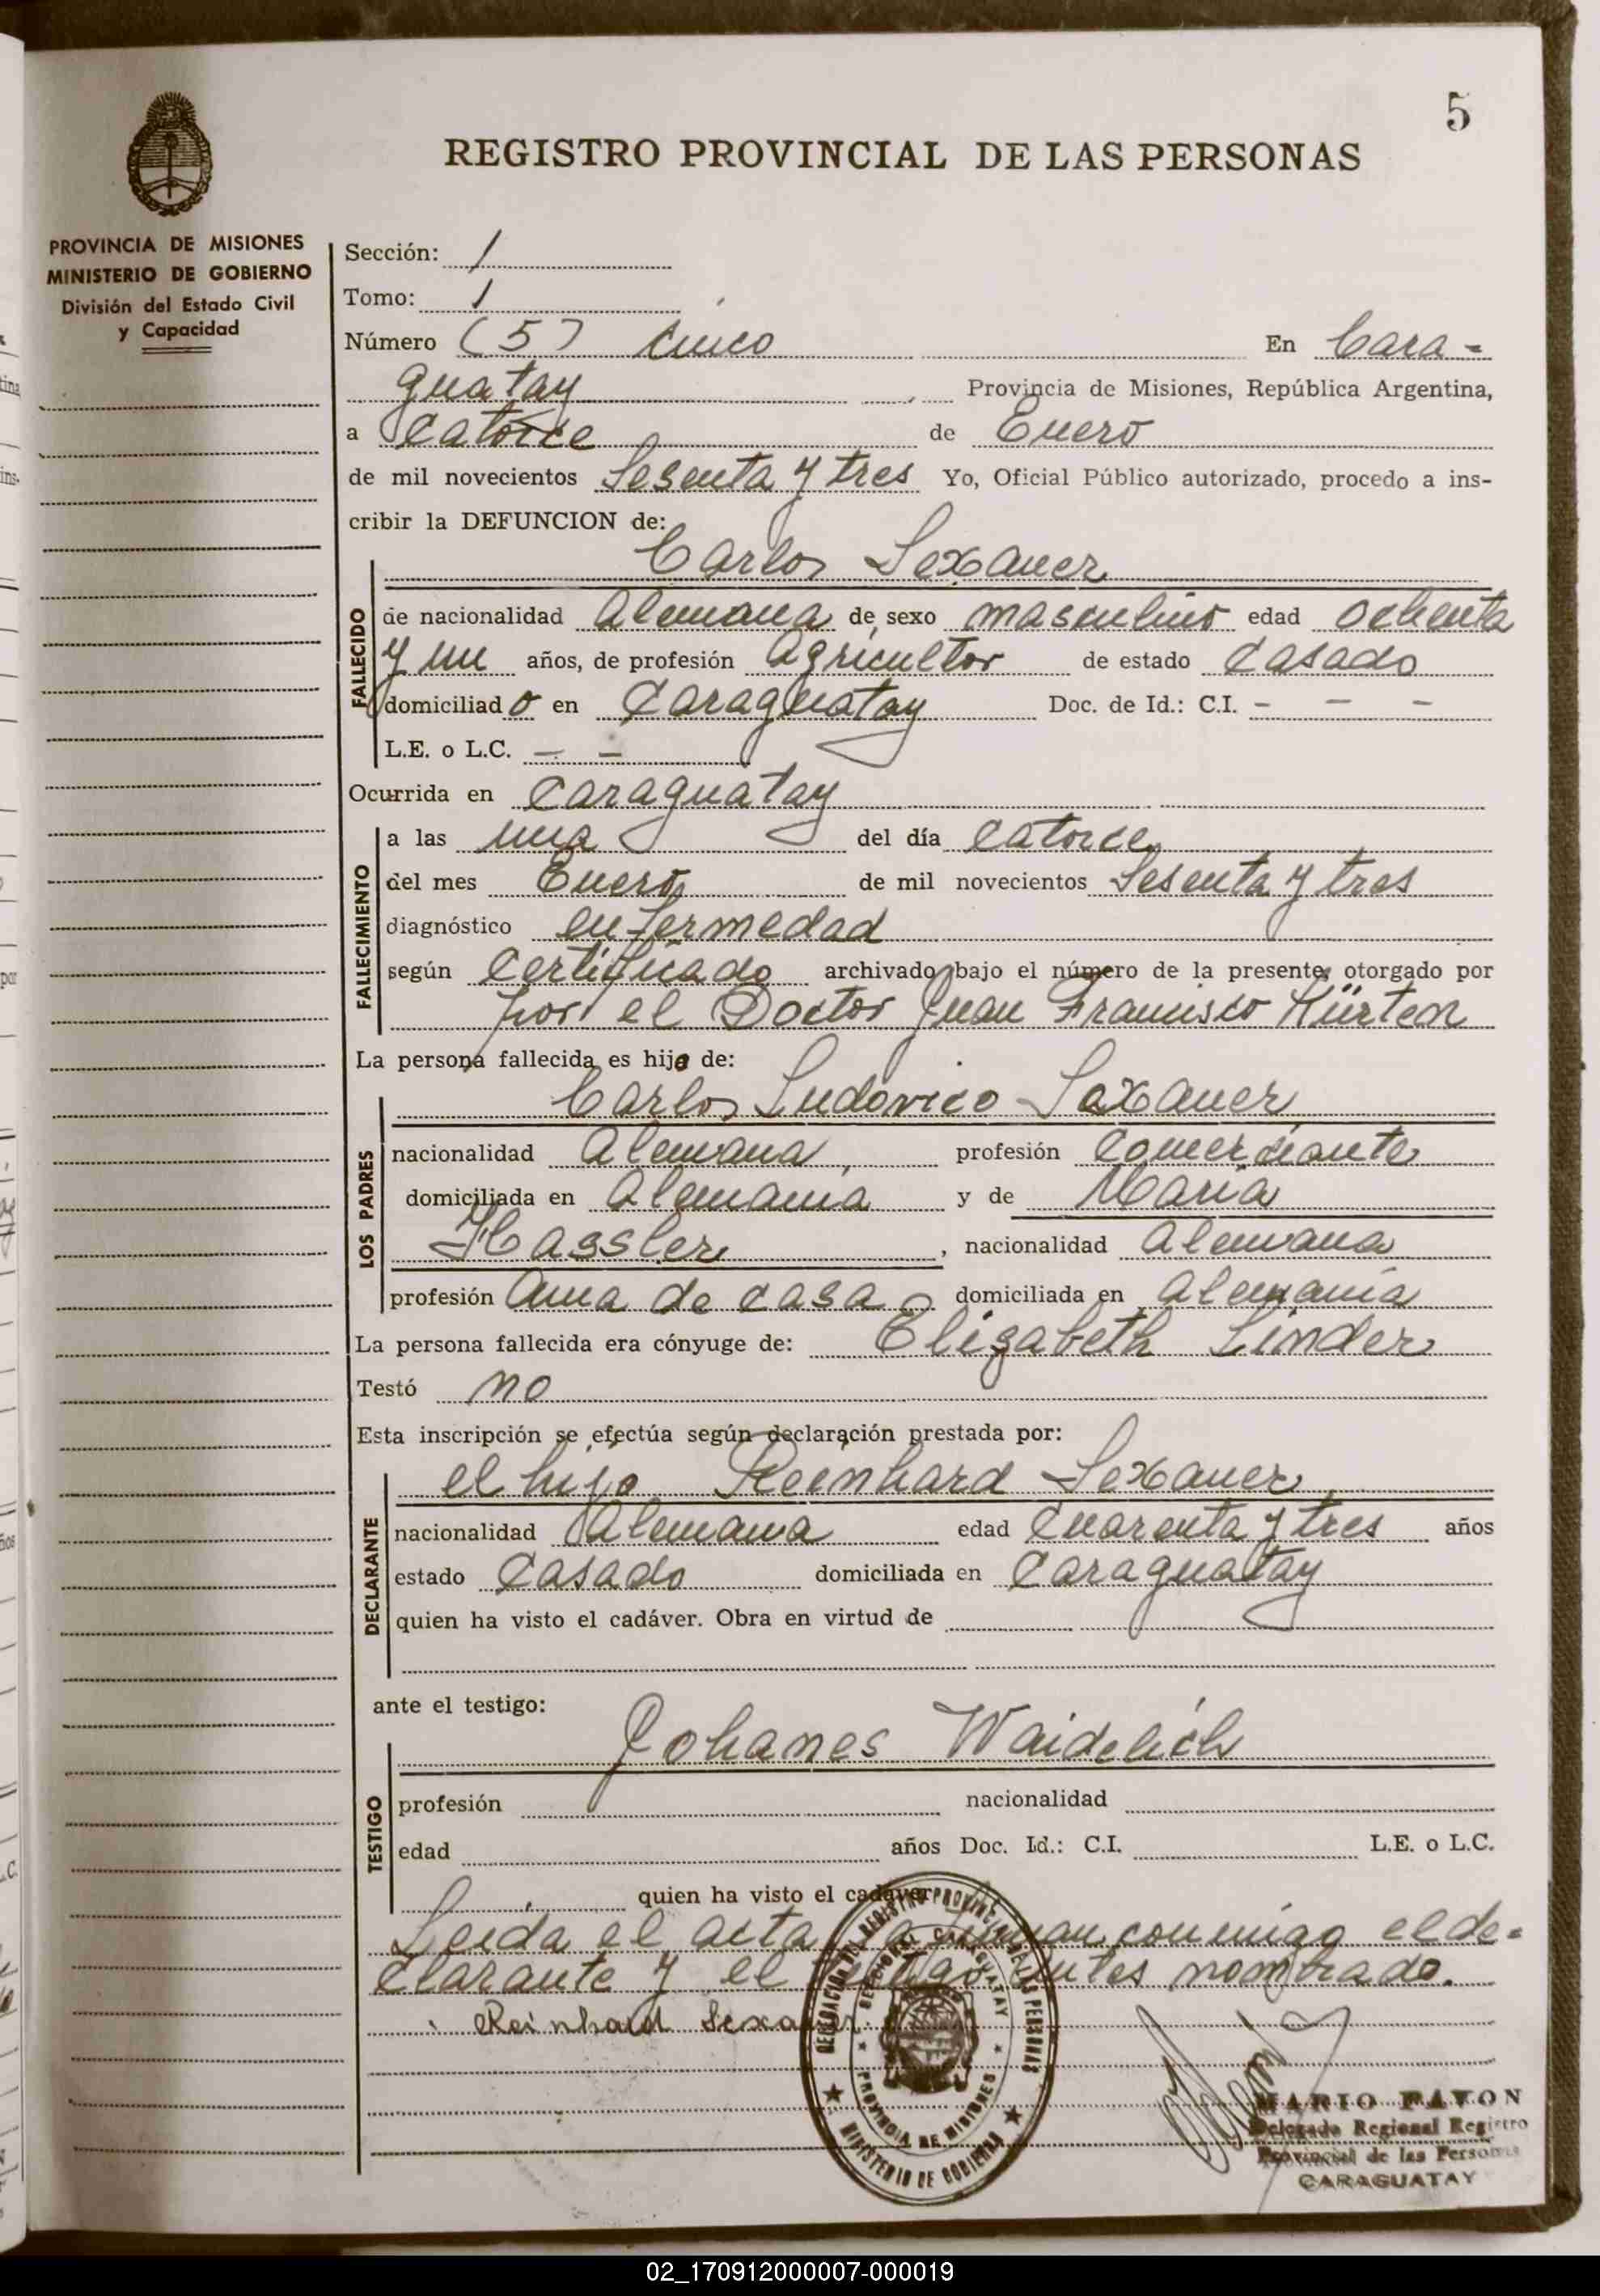 5
REGISTRO PROVINCIAL DE LAS PERSONAS
PROVINCIA DE MISIONES
MINISTERIO DE GOBIERNO
División del Estado Civil
y Capacidad
Sección: 1
Tomo: 1
Número (5) Cinco En Cara-
guatay Provincia de Misiones, República Argentina,
a Catorce de Enero
de mil novecientos Sesenta y tres Yo, Oficial Público autorizado, procedo a ins-
cribir la DEFUNCION de:
Carlos Sexauer
FALLECIDO
de nacionalidad Alemana de sexo masculino edad ochenta
y un años, de profesión Agricultor de estado Casado
domiciliado en Caraguatay Doc. de Id.: C.I. - - -
L.E. o L.C. - -
Ocurrida en Caraguatay
FALLECIMIENTO
a las una del día catorce
del mes Enero de mil novecientos Sesenta y tres
diagnóstico enfermedad
según Certificado archivado bajo el número de la presente, otorgado por
por el Doctor Juan Francisco Kürten
La persona fallecida es hijo de:
Carlos Ludovico Sexauer
LOS PADRES
nacionalidad Alemana, profesión Comerciante
domiciliada en Alemania y de Maria
Hassler, nacionalidad Alemana
profesión Ama de casa domiciliada en Alemania
La persona fallecida era cónyuge de: Elizabeth Linder
Testó no
Esta inscripción se efectúa según declaración prestada por:
el hijo Reinhard Sexauer
DECLARANTE
nacionalidad Alemana edad Cuarenta y tres años
estado Casado domiciliada en Caraguatay
quien ha visto el cadáver. Obra en virtud de
ante el testigo:
Johanes Waidelich
TESTIGO
profesión nacionalidad
edad años Doc. Id.: C.I. L.E. o L.C.
quien ha visto el cadáver
Leida el acta la firman conmigo el de-
clarante y el testigo antes nombrado.
Reinhard Sexauer
DELEGACION DEL REGISTRO PROVINCIAL DE LAS PERSONAS
SECCIONAL CARAGUATAY
PROVINCIA DE MISIONES
MINISTERIO DE GOBIERNO
MARIO PAVON
Delegado Regional Registro
Provincial de las Personas
CARAGUATAY
02_170912000007-000019